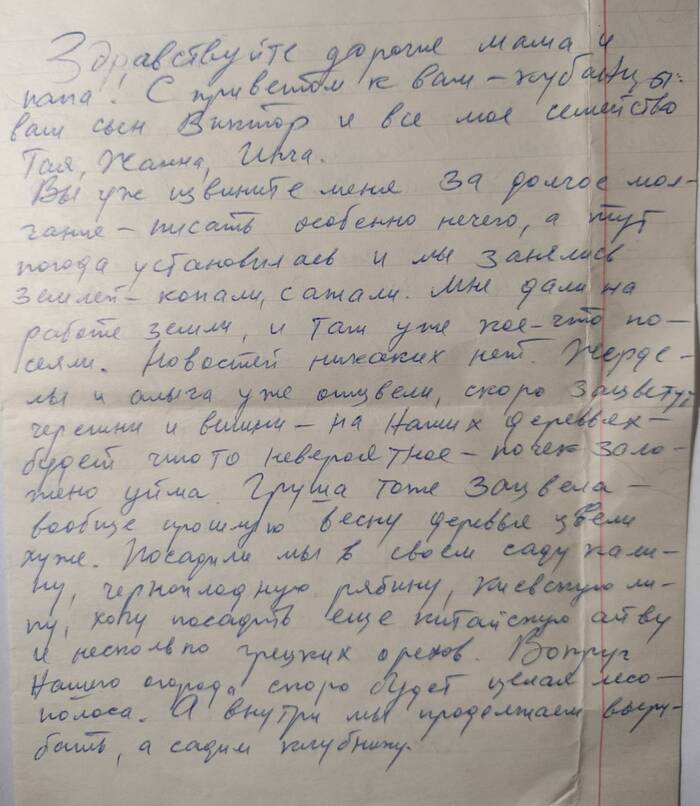 Здравствуйте дорогие мама и
папа! С приветом к вам – кубанцы:
ваш сын Виктор и все мое семейство
Тая, Жанна, Инга.
Вы уж извините меня за долгое мол-
чание – писать особенно нечего, а тут
погода установилась и мы занялись
землей – копали, сажали. Мне дали на
работе земли, и там уже кое-что по-
сеяли. Новостей никаких нет. Жерде-
лы и алыча уже отцвели, скоро зацветут
черешни и вишни – на наших деревьях –
будет что то невероятное – почек зало-
жено уйма. Груша тоже зацвела –
вообще прошлую весну деревья цвели
хуже. Посадили мы в своем саду кали-
ну, черноплодную рябину, киевскую ли-
пу, хочу посадить еще китайскую айву
и несколько грецких орехов. Вокруг
нашего огорода скоро будет целая лесо-
полоса. А внутри мы продолжаем выру-
бать, а садим клубнику.